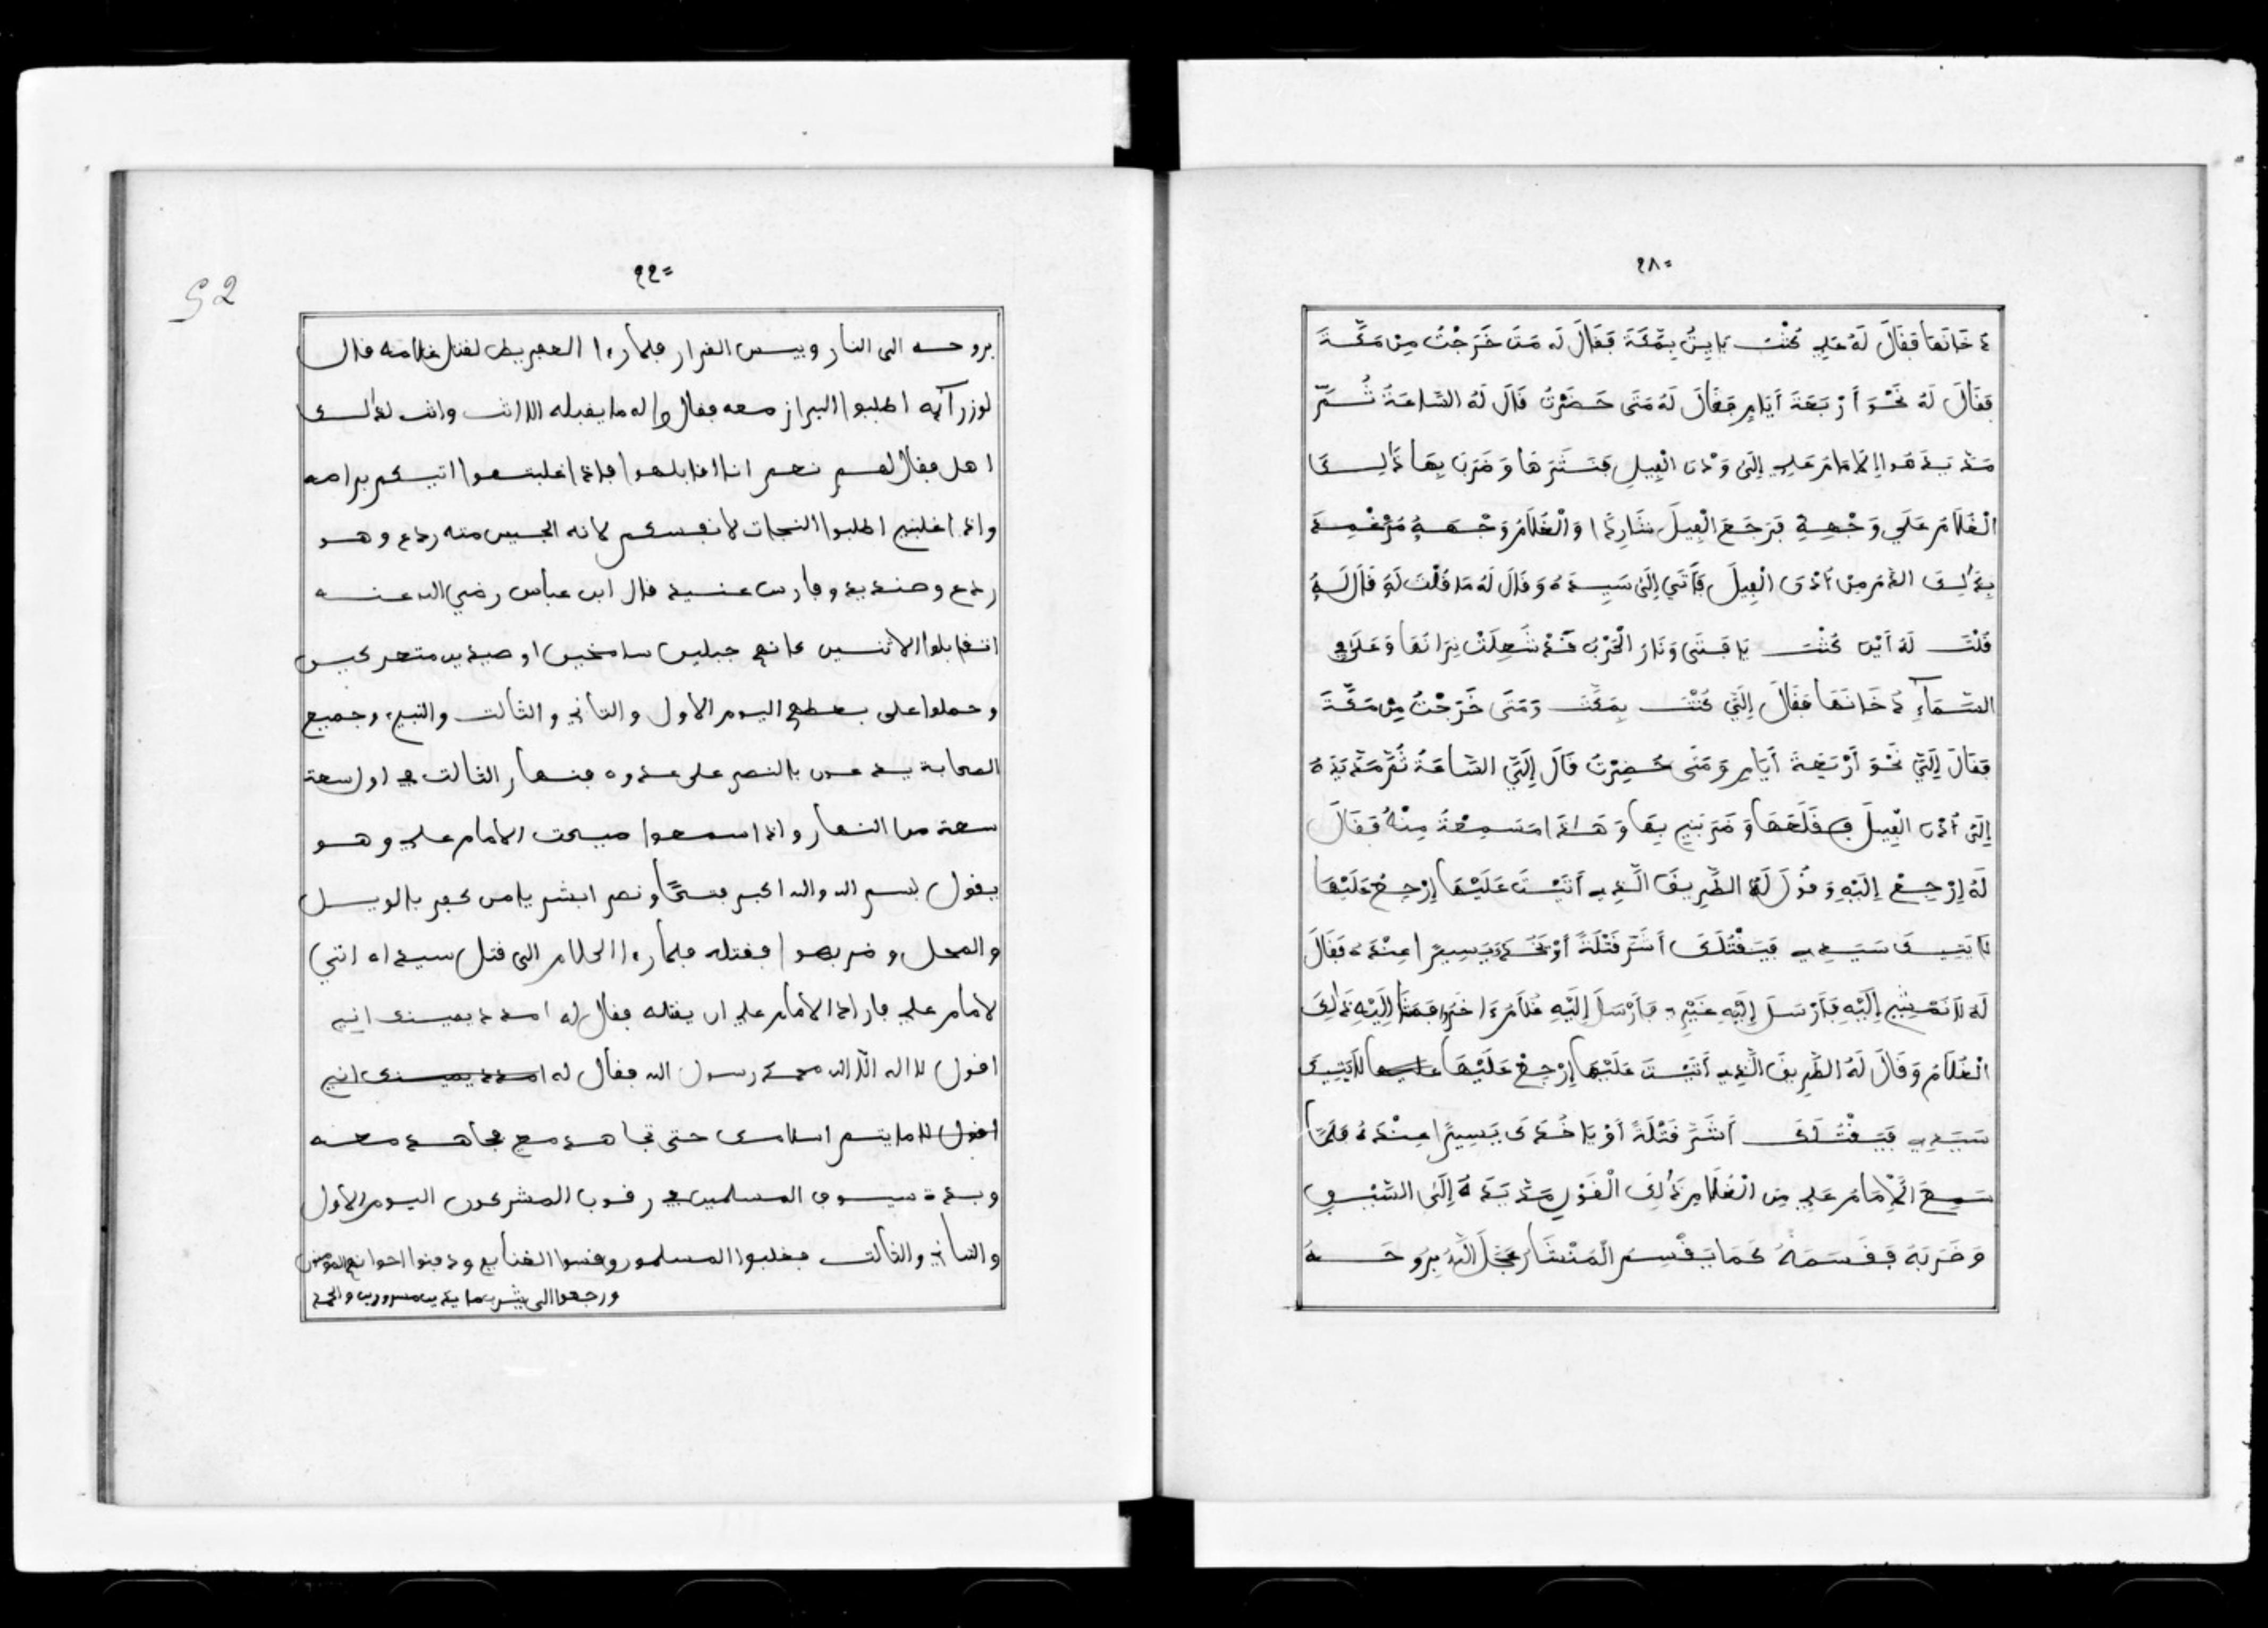 ٩٨
دخانها فقال له علي كنت يا بني بمكة فقال له متى خرجت من مكة
فقال له نحو أربعة أيام فقال له متى حضرت قال له الساعة ثم
مد يده الإمام علي إلى وذن الفيل فنترها وضرب بها ذالك
الغلام على وجهه فرجع الفيل شاردا والغلام وجهه مرغمد
بذلك الدم من أذن الفيل فأتى إلى سيده وقال له ما قلت له قال له
قلت له أين كنت يا فتى ونار الحرب قد شعلت نيرانها وعلى في
السماء دخانها فقال إلي كنت بمكة ومتى خرجت من مكة
فقال إلي نحو أربعة أيام ومتى حضرت قال إلي الساعة ثم مد يده
إلى أذن الفيل فقلعها وضربني بها وهذا مسمعة منه فقال
له إرجع إليه وقول له الطريق الذي أتيت عليها إرجع عليها
لا يتيك سيدي فيقتلك أشر قتلة أو يخدك يسيرا عنده فقال
له لا نمشي إليه فأرسل إليه غيري فأرسل إليه غلام ءاخر فمشا إليه ذلك
الغلام وقال له الطريق الذي أتيت عليها إرجع عليها عليها لايتيك
سيدي فيقتلك أشر قتلة أو ياخدك يسيرا عنده فلما
سمع الإمام علي من الغلام ذلك القول مد يده إلى السيف
وضربه فقسمه كما يقسم المنشار عجل الله بروحه
٩٩
52
بروحه الى النار وبيس القرار فلما رءا العفريط لقتل غلامه قال
لوزرآيه اطلبوا البراز معه فقال واله ما يقبله الا انت وانت لذالك
اهل فقال لهم نعم انا اقابلهوا فاذا غلبتهوا اتيكم براسه
واذا غلبني اطلبوا النجات لانفسكم لانه الجيس منه ردع وهو
ردع وصنديد وفارس عنيد قال ابن عباس رضي الله عنه
اتقابلوا الاثنين كانهم جبلين سامخين او صيدين متحركين
وحملوا على بعطهم اليوم الاول والثاني والثالت والنبيء وجميع
الصحابة يدعون بالنصر على عدوه فنهار الثالت في اول سعة
سعة من النهار واذا سمعوا صيحت الامام علي وهو
يقول بسم الله والله اكبر فتحا ونصر ابشر يا من كفر بالويل
والمحل وضربهوا فقتله فلما رءا الغلام الى قتل سيده ا اتي
لامام علي فاراد الامام علي ان يقتله فقال له امدد يمينك اني
اقول لا اله الا الله محمد رسول الله فقال له امدد يمينك اني
اقول لا ما يتم اسلامك حتى تجاهد مع مجاهد معه
وبده سيوف المسلمين في رقوب المشركون اليوم الاول
والثاني والثالت فغلبوا المسلمون وقسموا الغنايم ودفنوا اخوانهم المومنين
ورجعوا الى يثرب مايدين مسرورين والحمد